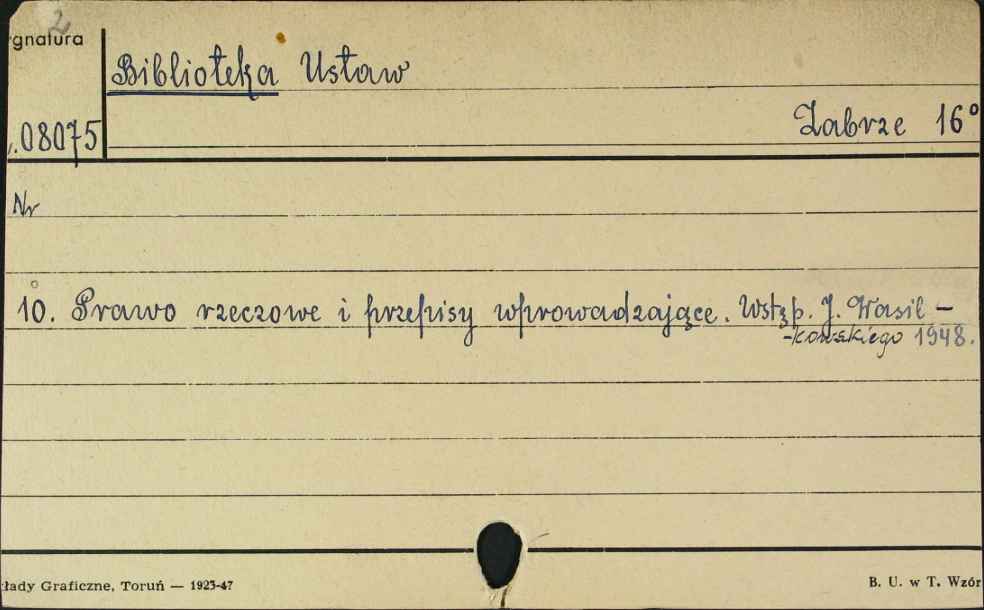 gnatura
Biblioteka Ustaw
08075
Zabrze 16°
Nr
10. Prawo rzeczowe i przepisy wprowadzające. Wstęp. J. Wasil-
-kowskiego 1948.
łady Graficzne, Toruń — 1923-47
B. U. w T. Wzór